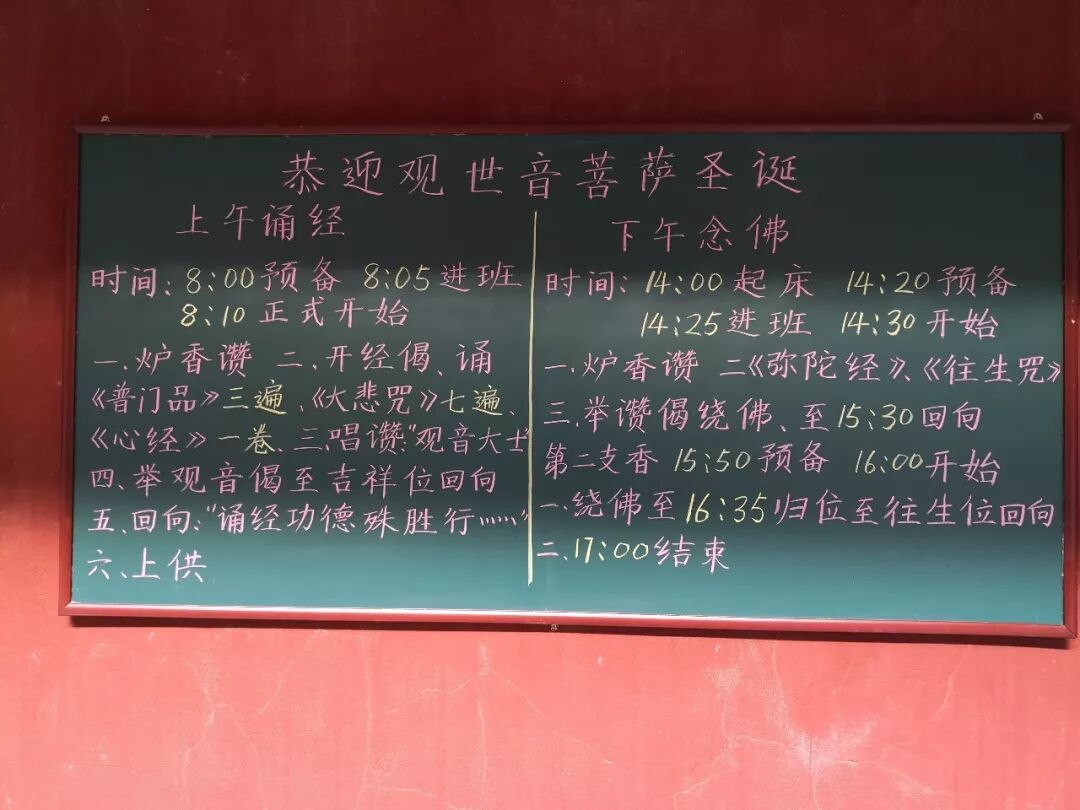 恭迎观世音菩萨圣诞
上午诵经
时间：8:00预备 8:05进班
8:10正式开始
一、炉香讚 二、开经偈、诵
《普门品》三遍、《大悲咒》七遍、
《心经》一卷、三、唱讚："观音大士"
四、举观音偈至吉祥位回向
五、回向："诵经功德殊胜行……"
六、上供
下午念佛
时间：14:00起床 14:20预备
14:25进班 14:30开始
一、炉香讚 二《弥陀经》、《往生咒》
三、举讚偈绕佛、至15:30回向
第二支香 15:50预备 16:00开始
一、绕佛至16:35归位至往生位回向
二、17:00结束